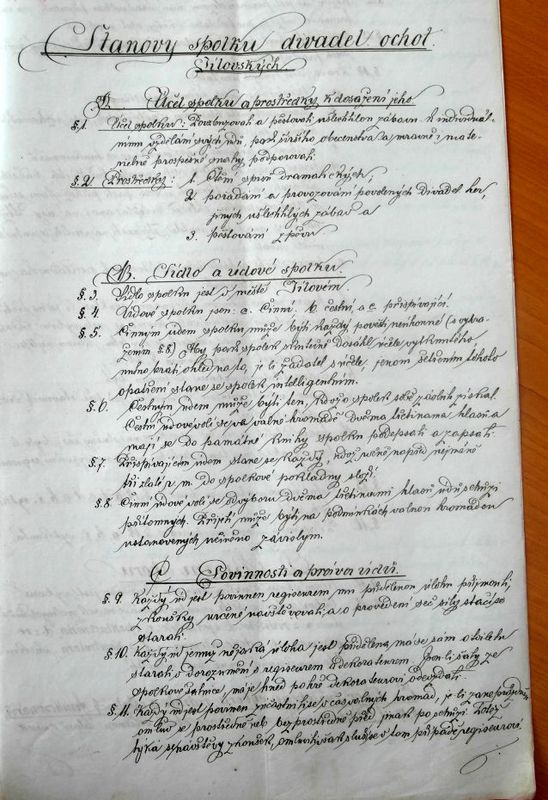 Stanovy spolku divadel. ochot.
Jílovských
A. Účel spolku a prostředky k dosažení jeho.
§.1. Účel spolku: Povzbuzovat a pěstovat ušlechtilou zábavu k individuál
nímu vzdělání svých údů, pak širšího obecenstva a mravně i mate-
rielně prospěšné snahy podporovat.
§.2. Prostředky: 1. Čtení spisů dramatických;
2. pořádání a provozování povolených divadel. her,
jiných ušlechtilých zábav a
3. pěstování zpěvu
B. Sídlo a údové spolku.
§.3. Sídlo spolku jest v městě Jílovém
§.4 Údové spolku jsou: a. Činní. b. čestní, a c. přispívající.
§.5. Činným údem spolku může býti každý pověsti neúhonné (s výra-
žením §.8) Aby pak spolek skutečně dosáhl účele vytknutého,
nutno brati ohled na to, je-li žadatel jenom šetřením tohoto
opatření stane se spolek intelligentním.
§.6. Čestným údem může býti ten, kdož o spolek sobě zásluh získal.
Čestní údové volí se ve valné hromadě dvěma třetinama hlasů a
mají se do památné knihy spolku podepsati a zapsati
§.7. Přispívajícím údem stane se každý, kdož ročně napřed nejméně
tři zlaté r. m. do spolkové pokladny složí.
§.8. Činní údové volí se výborem dvěma třetinami hlasů údů schůzi
přítomných. Přijetí může býti na podmínkách valnou hromadou
ustanovených učiněno závislým.
C Povinnosti a práva údů.
§.9. Každý úd jest povinnen regisseurem mu přidělenou úlohu přijmouti,
zkoušky určené navštěvovat, a o provedení seč síly stačí se
starati.
§.10. Každý úd jemuž nějaká úloha jest přidělena, má se sám o toiletu
starati s dorozuměním s regisseurem i dekorateurem. Jsou-li šaty ze
spolkové šatnice, má je hned po hře dekorateurovi odevzdati.
§.11. Každý úd jest povinen súčastniti se občasných valných hromad, je-li zaneprázdněn
omluv se prostředně neb bezprostředně před jinak po schůzi. Totéž
týká se návštěvy zkoušek, omluvit však sluší se v tom případě regisseurovi.